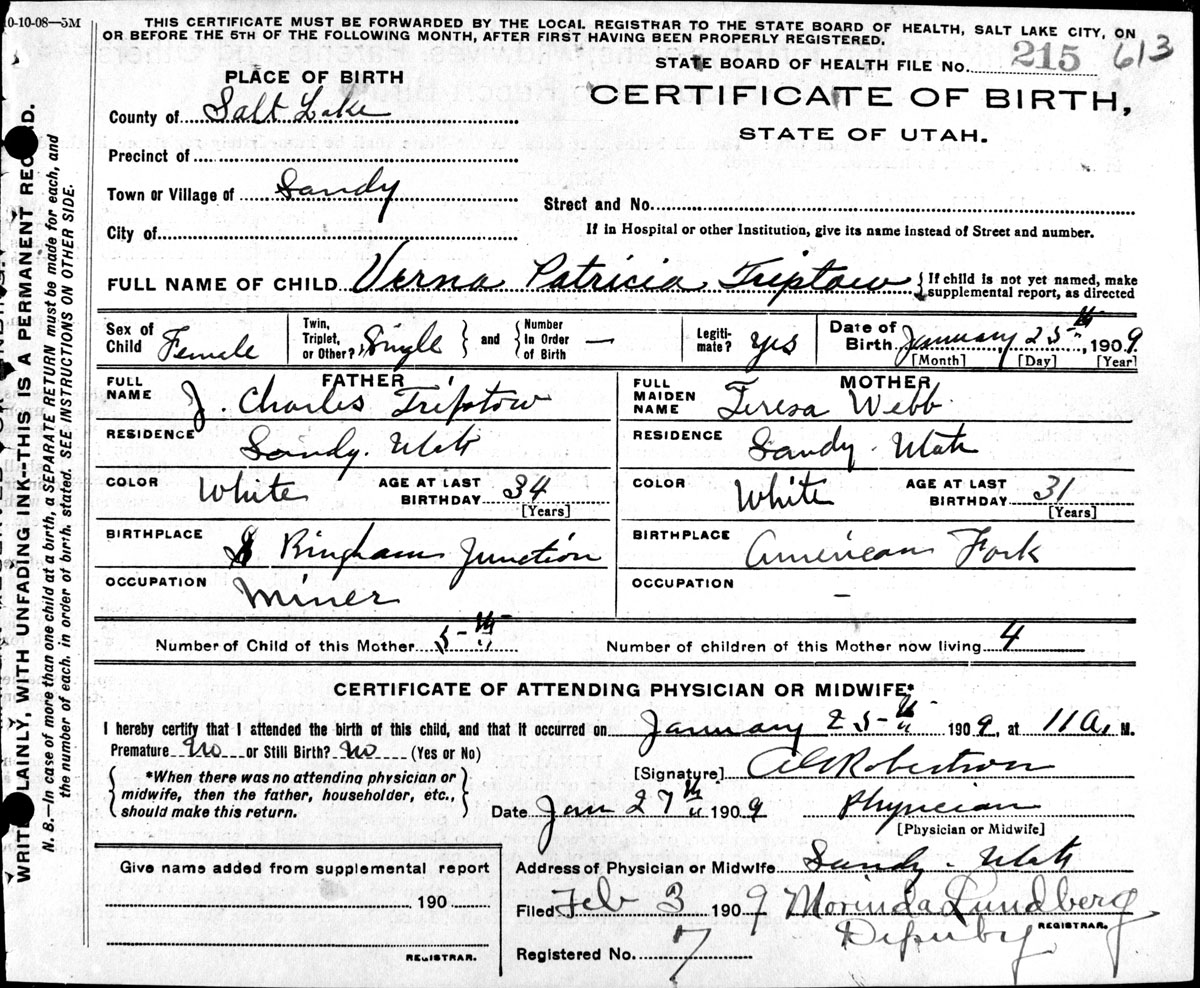 10-10-08—5M
THIS CERTIFICATE MUST BE FORWARDED BY THE LOCAL REGISTRAR TO THE STATE BOARD OF HEALTH, SALT LAKE CITY, ON
OR BEFORE THE 5TH OF THE FOLLOWING MONTH, AFTER FIRST HAVING BEEN PROPERLY REGISTERED.
STATE BOARD OF HEALTH FILE No. 215 613
PLACE OF BIRTH
CERTIFICATE OF BIRTH,
STATE OF UTAH.
County of Salt Lake
Precinct of
Town or Village of Sandy
Street and No.
City of
If in Hospital or other Institution, give its name instead of Street and number.
FULL NAME OF CHILD Verna Patricia Triptow { If child is not yet named, make
supplemental report, as directed
Sex of Child Female
Twin, Triplet, or Other? Single } and { Number In Order of Birth —
Legiti-mate? yes
Date of Birth January 25th, 1909
[Month] [Day] [Year]
FATHER
FULL NAME J. Charles Triptow
MOTHER
FULL MAIDEN NAME Teresa Webb
RESIDENCE Sandy. Utah
RESIDENCE Sandy. Utah
COLOR White AGE AT LAST BIRTHDAY 34 [Years]
COLOR White AGE AT LAST BIRTHDAY 31 [Years]
BIRTHPLACE Bingham Junction
BIRTHPLACE American Fork
OCCUPATION Miner
OCCUPATION —
Number of Child of this Mother 5th
Number of children of this Mother now living 4
CERTIFICATE OF ATTENDING PHYSICIAN OR MIDWIFE*
I hereby certify that I attended the birth of this child, and that it occurred on January 25th 1909, at 11 A. M.
Premature No or Still Birth? No (Yes or No)
{ *When there was no attending physician or
midwife, then the father, householder, etc.,
should make this return. }
[Signature] Robertson
Date Jan 27th 1909 Physician
[Physician or Midwife]
Address of Physician or Midwife Sandy - Utah
Give name added from supplemental report
190
REGISTRAR.
Filed Feb 3 1909 Morinda Lundberg
Deputy REGISTRAR.
Registered No. 7
WRITE PLAINLY, WITH UNFADING INK--THIS IS A PERMANENT RECORD.
N. B.—In case of more than one child at a birth, a SEPARATE RETURN must be made for each, and
the number of each, in order of birth, stated. SEE INSTRUCTIONS ON OTHER SIDE.